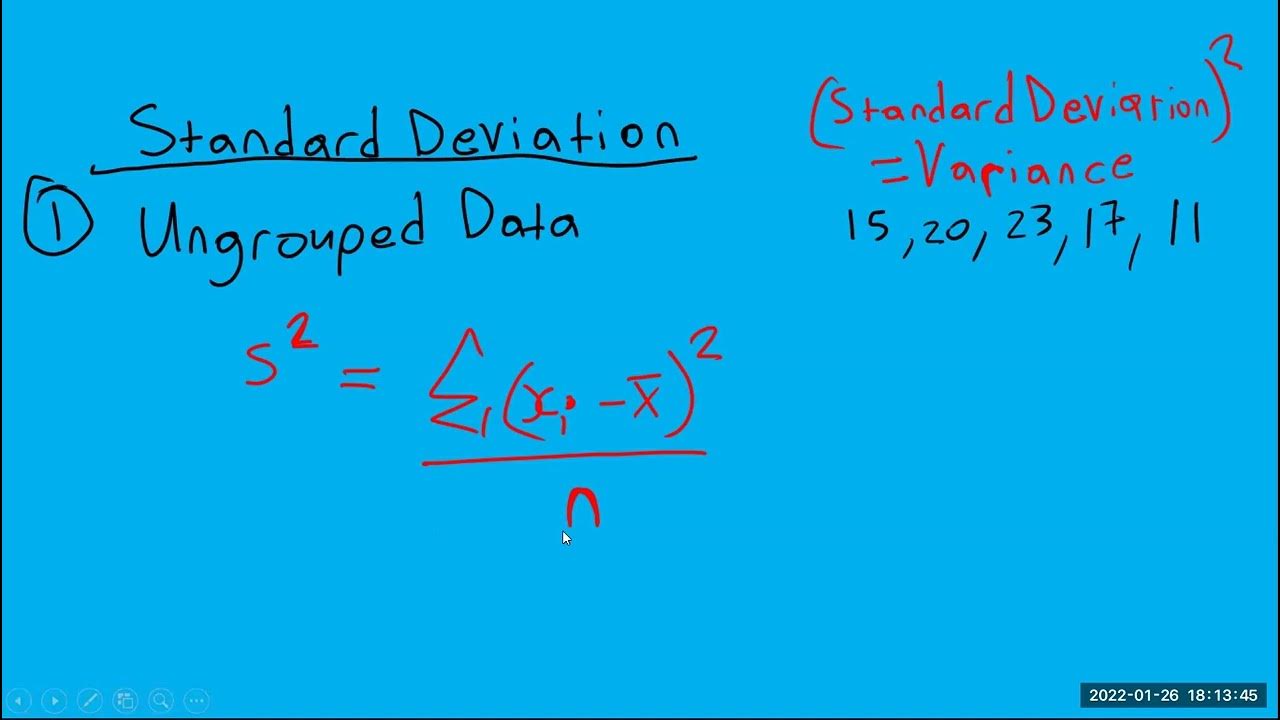 Standard Deviation
① Ungrouped Data
(Standard Deviation)²
= Variance
15, 20, 23, 17, 11
s² = Σ(xᵢ - x̄)² / n
2022-01-26 18:13:45